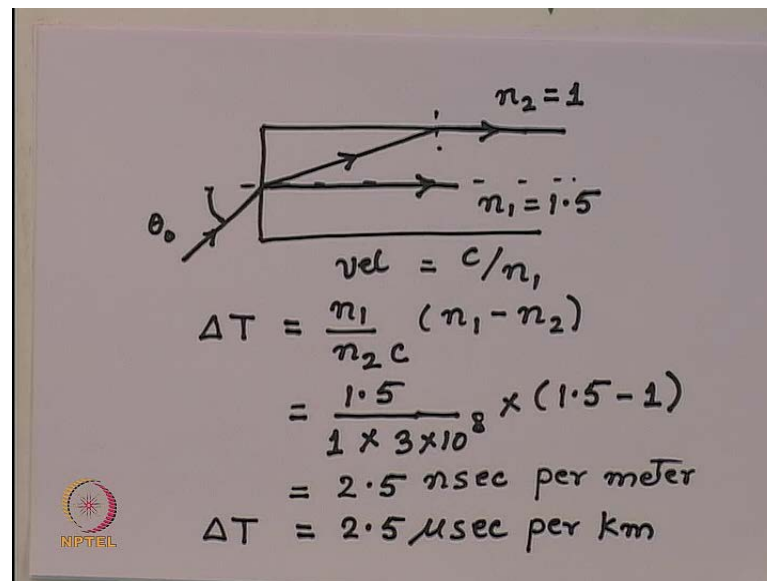 n₂ = 1
n₁ = 1.5
θ₀
vel = c/n₁
ΔT = n₁/n₂c (n₁ - n₂)
= 1.5/1 × 3 × 10⁸ × (1.5 - 1)
= 2.5 nsec per meter
ΔT = 2.5 μsec per km
NPTEL